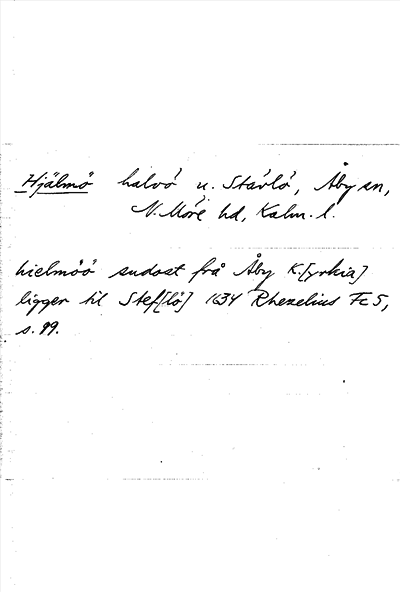 Hjälmö halvö u. Stävlö, Åby sn,
N. Möre hd, Kalm. l.
hielmöö sudost frå Åby K.[yrkia]
ligger til Stef[lö] 1634 Rhezelius Fc5,
s. 99.